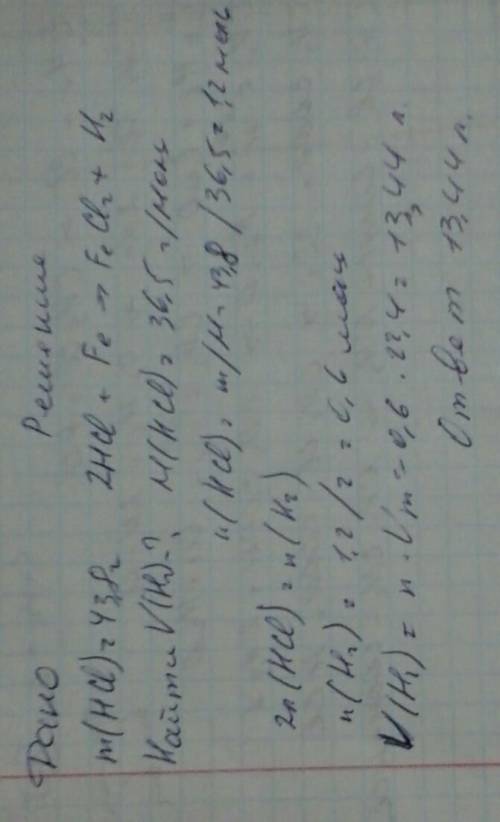 Дано Решение
m(HCl)=43,8г 2HCl + Fe → FeCl₂ + H₂
Найти V(H₂)-? M(HCl)= 36,5 г/моль
n(HCl)= m/M= 43,8 /36,5= 1,2 моль
2n(HCl)= n(H₂)
n(H₂)= 1,2/2 = 0,6 моль
V(H₂)= n · Vm = 0,6 · 22,4 = 13,44 л.
Ответ 13,44 л.